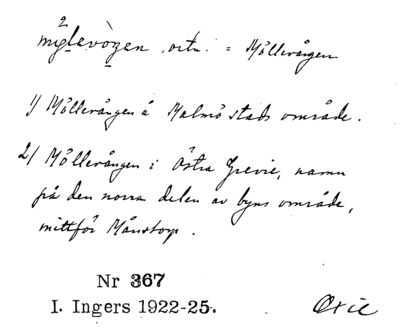 2
møllevȯŋen ortn. = Möllevången
1) Möllevången å Malmö stads område.
2) Möllevången i Östra Grevie, namn
på den norra delen av byns område,
mittför Månstorp.
Nr 367
I. Ingers 1922-25.
Oxie